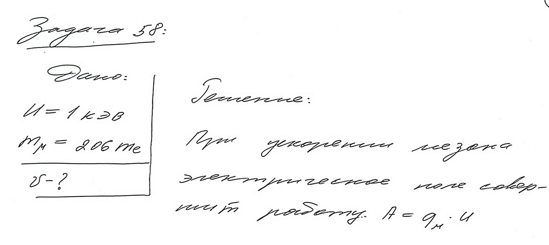 Задача 58:
Дано:
U = 1 кэв
mм = 206 me
v - ?
Решение:
При ускорении мезона
электрическое поле совер-
шит работу. A = qм · U